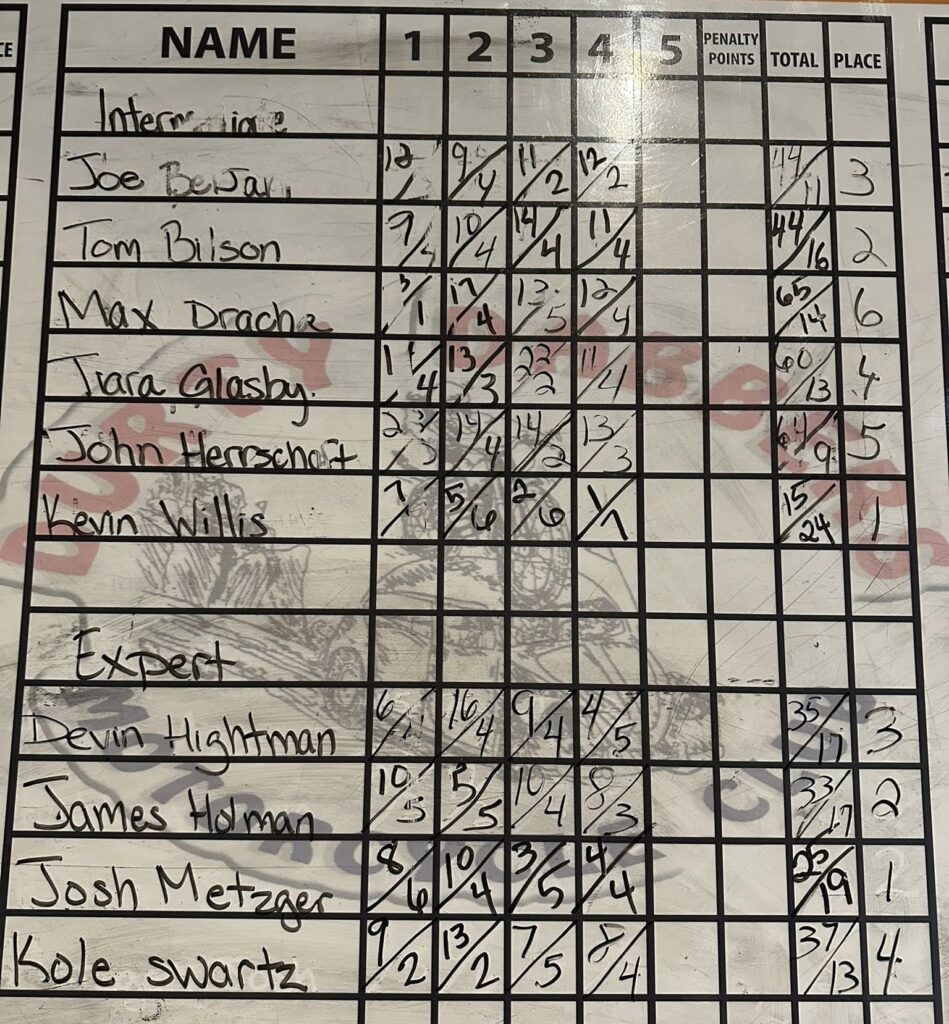 NAME 1 2 3 4 5 PENALTY POINTS TOTAL PLACE
Joe 9/4 11/2 12/2 44/11 3
Tom Bilson 10/4 14/4 11/4 44/16 2
Max 17/4 13/5 12/4 65/14 6
Glasby 13/3 23/2 11/4 60/13 4
John Herrschaft 23/3 14/4 14/2 13/3 64/9 5
Kevin Willis 5/6 2/6 1/7 15/24 1
Expert
Devin Hightman 16/4 9/4 4/5 35/17 3
James Holman 10/5 5/5 10/4 8/3 33/17 2
Josh Metzger 8/6 10/4 3/5 4/4 25/19 1
Kole swartz 9/2 13/2 7/5 8/4 37/13 4
DURTY DABBERS
MOTORCYCLE CLUB